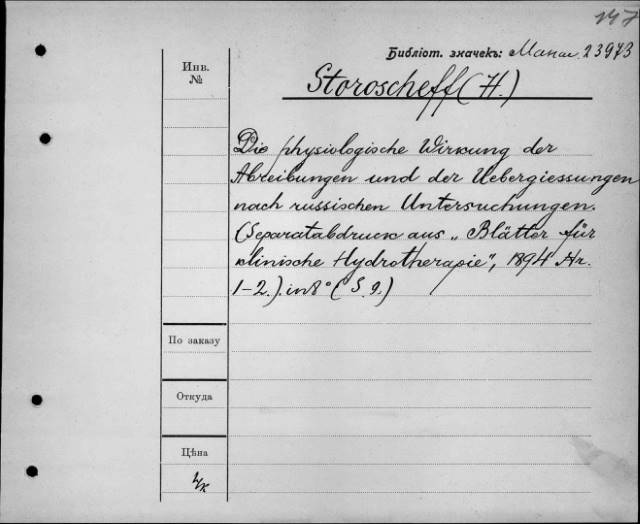 147
Библіот. значекъ: Манас 23973
Инв.
№
Storoscheff (H.)
Die physiologische Wirkung der
Abreibungen und der Uebergiessungen
nach russischen Untersuchungen.
(Separatabdruck aus „Blätter für
klinische Hydrotherapie", 1894 Nr.
1-2.). in 8° (S. 9.)
По заказу
Откуда
Цѣна